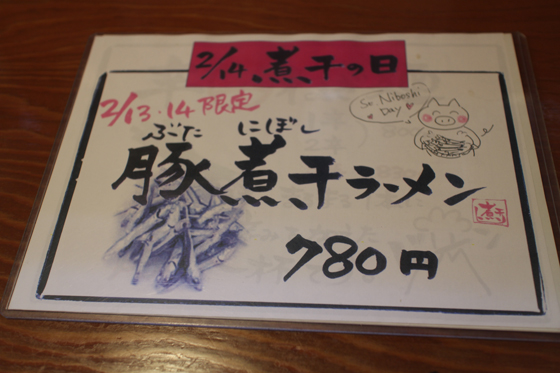 2/14 煮干の日
2/13・14 限定
So Niboshi
DAY
ぶた にぼし
豚煮干ラーメン
煮干
780円